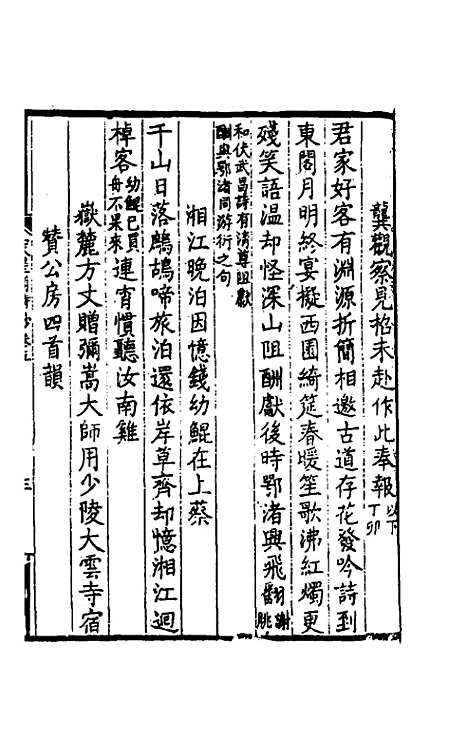 龔觀察見招未赴作此奉報以下丁卯
君家好客有淵源折簡相邀古道存花發吟詩到
東閣月明終宴擬西園綺筵春暖笙歌沸紅燭更
殘笑語溫却怪深山阻酬獻後時鄂渚興飛翻謝朓
和伏武昌詩有清尊阻獻
酬與鄂渚同游衍之句
湘江晚泊因憶錢幼鯤在上蔡
千山日落鷓鴣啼旅泊還依岸草齊却憶湘江迴
棹客幼鯤已買舟不果來連宵慣聽汝南雞
嶽麓方丈贈彌嵩大師用少陵大雲寺宿
贊公房四首韻